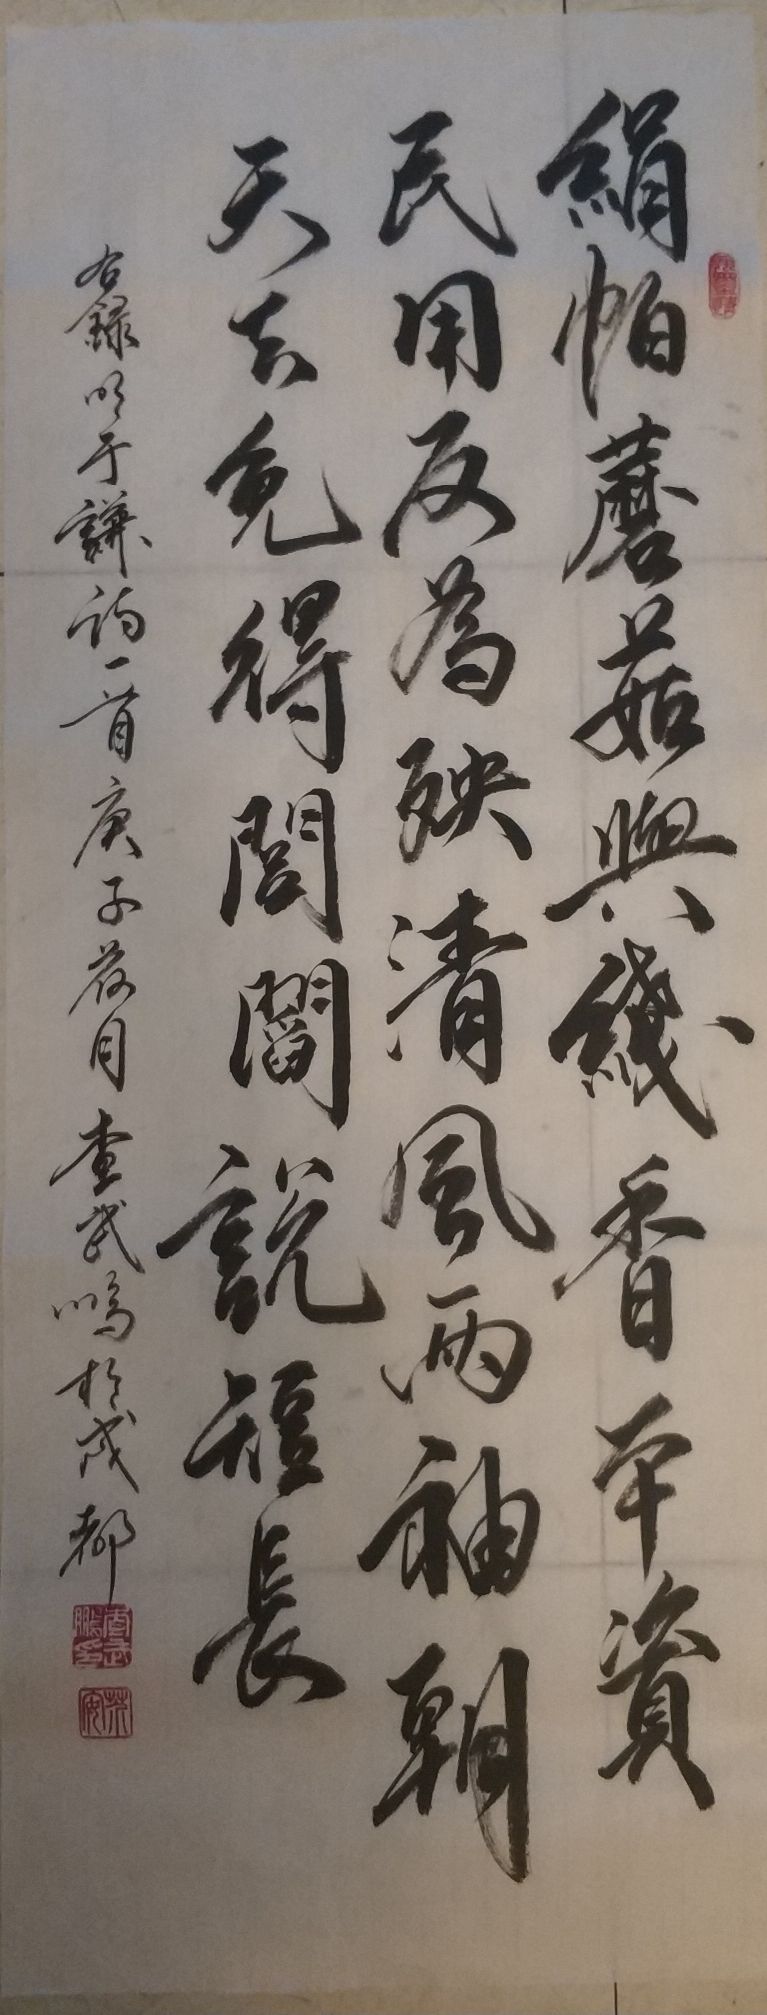 絹帕蘑菇與綫香本資
民用反為殃清風兩袖朝
天去免得閭閻說短長
右錄明于謙詩一首庚子荷月查武鳴於成都